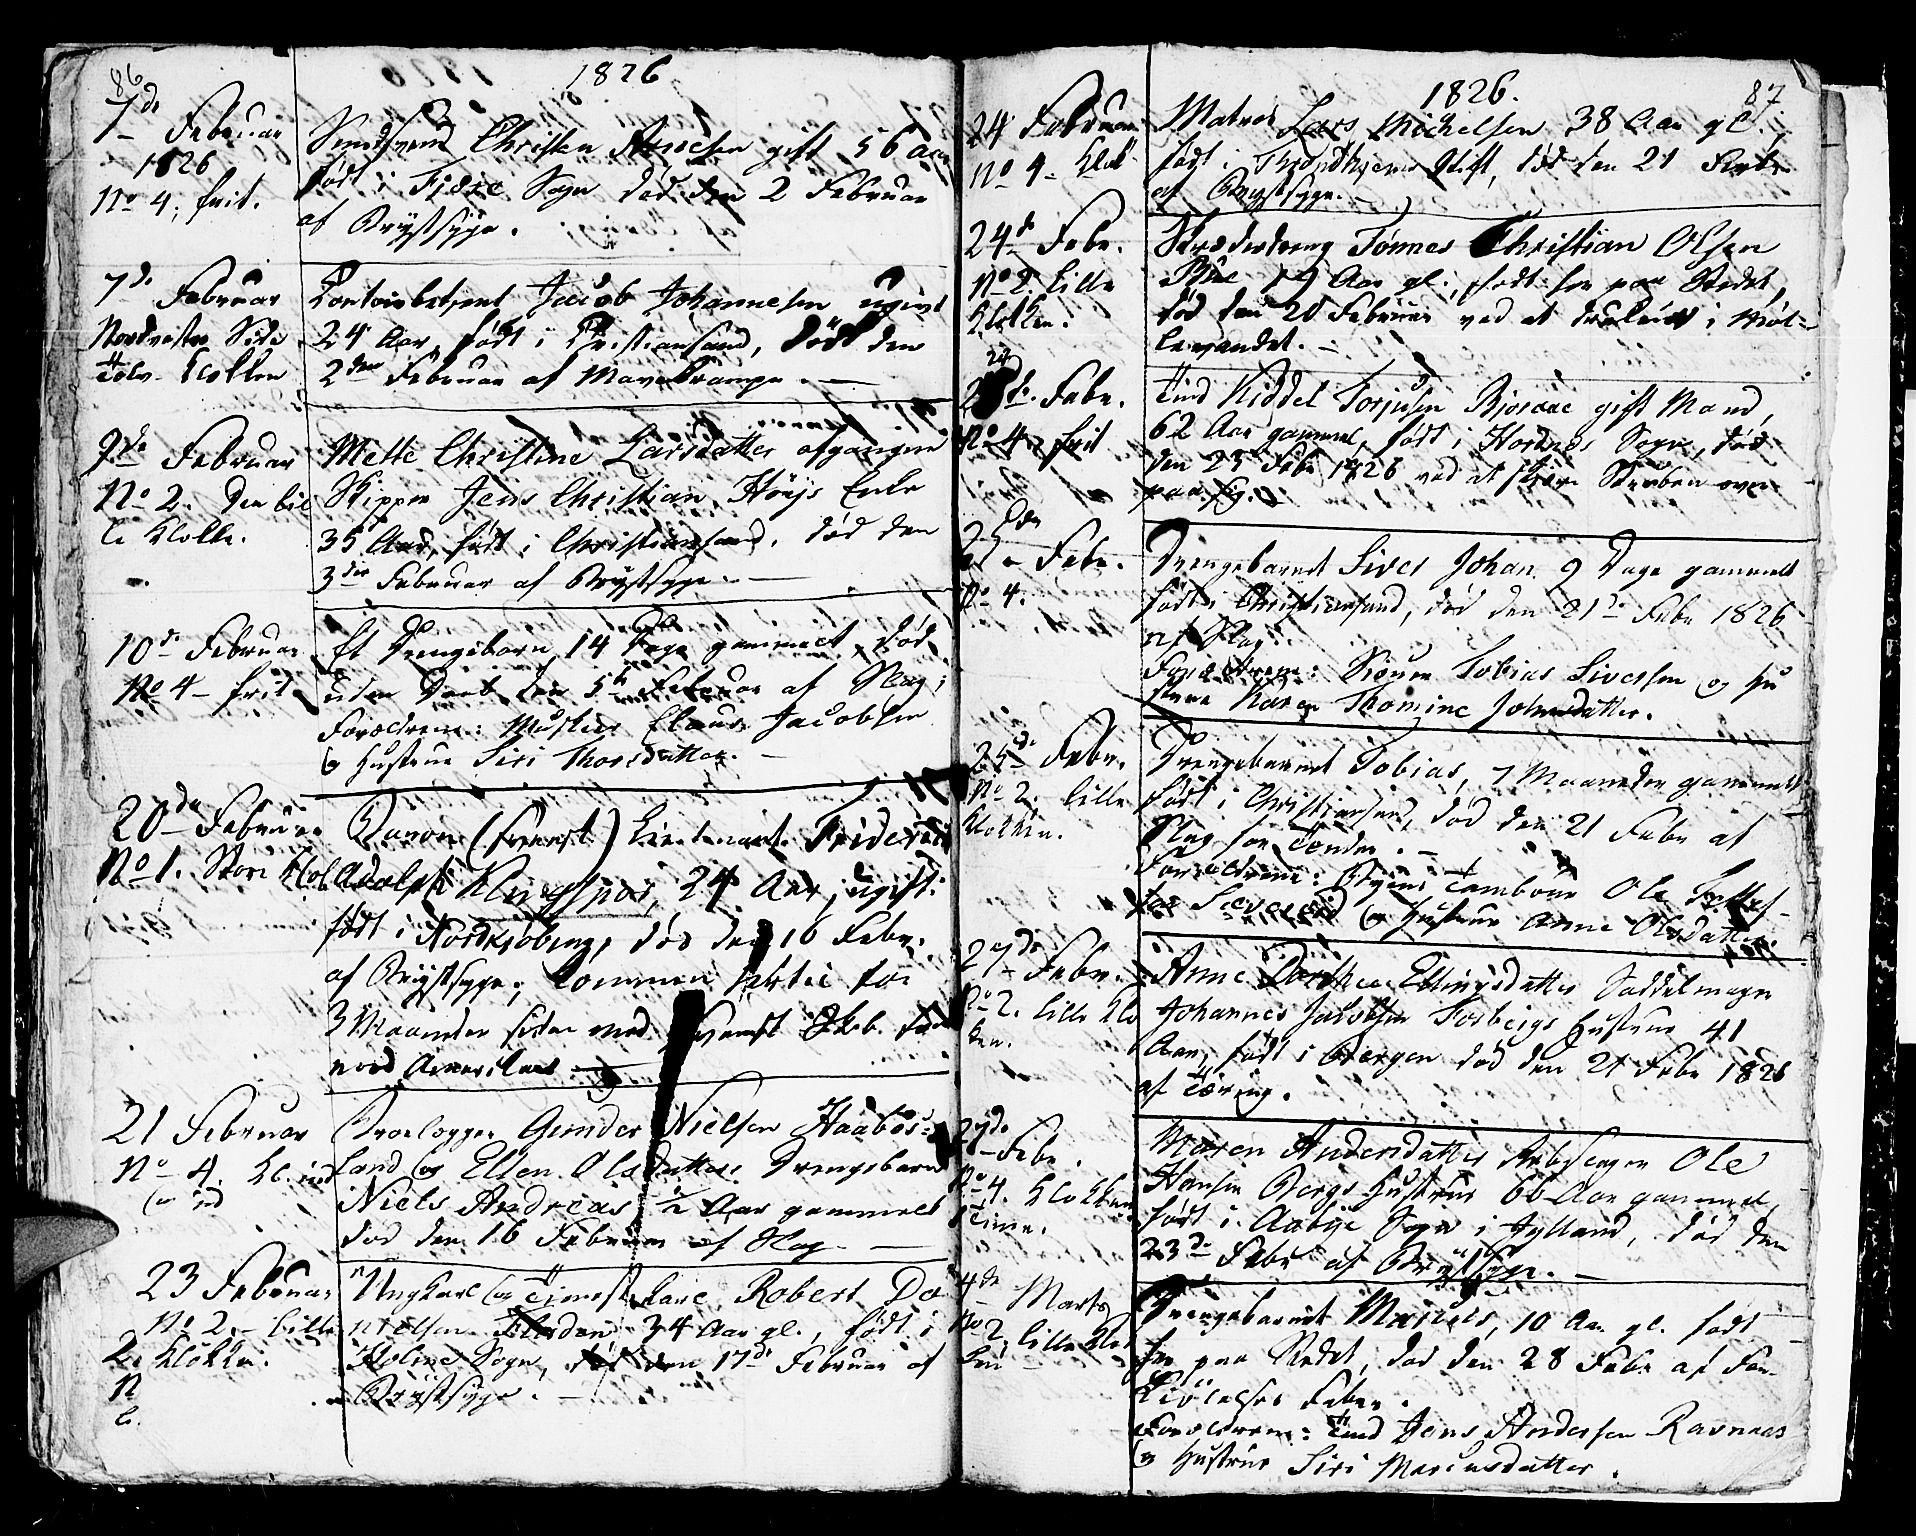 86
1826
7de Februar
1826
No 4. frit.
Christen Arnesen gift 56 Aar
født i Fjære Sogn død den 2 Februar
af Brystsyge.
7de Februar
Nordvestre Side
Contoirbetjent Jacob Johannesen ugivt
24 Aar, født i Christiansand, død den
2den Februar af Mavekrampe.
9de Februar
No 2. den lil
le Klokke.
Mette Christine Larsdatter afgangne
Skipper Jens Christian Höyjs Enke
35 Aar, født i Christiansand, død den
3die Februar af Brystsyge.
10de Februar
No 4 - frit
Et Drengebarn 14 Dage gammelt, død
uden Daab den 5te Februar af Slag;
Forældrene: Claus Jacobsen
og Hustrue Siri Thorsdatter.
20de Februar
No 1. Store Klok
Baron (svensk) Lieutenant Friderich
Adolph Klingspor, 24 Aar, ugift
født i Nordkjöbing, død den 16 Febr.
af Brystsyge; kommen hertil for
3 Maaneder siden med svensk Skib fra
nord America
21 Februar
No 4. Kl. ind
og ud
Gunder Nielsen Haabes-
land og Ellen Olsdatters Drengebarn
Niels Andreas 1/2 Aar gammelt
død den 16 Februar af Slag
23 Februar
No 2. Lille
Klokke.
Ungkarl og Robert Da
nielsen 34 Aar gl., født i
Holme Sogn, død den 17de Februar af
Brystsyge.
1826.
87
24 Februar
No 4. Klok
Matros Lars Michelsen 38 Aar gl.
født i Trondhjems Stift, død den 21 Febr
af Brystsyge.
24de Febr.
No 2. Lille
Klokken.
Skrædderdreng Tønnes Christian Olsen
19 Aar gl., født her paa Stedet,
død den 20 Februar ved at drukne i Møl-
levandet.
24
Febr.
No 4. frit
Kiddel Torjusen gift Mand,
62 Aar gammel, født i Sogn, død
den 23 Febr 1826 ved at skjære Struben over
paa sig.
Febr.
No 4.
Drengebarnet Siver Johan 9 Dage gammelt
født i Christiansand, død den 21de Febr 1826
af Slag.
Forældrene: Tobias Siversen og Hu
strue Karen Thomine Johnsdatter.
25de Febr.
No 2. Lille
Klokken.
Drengebarnet Tobias, 7 Maaneder gammelt
født i Christiansand, død den 21 Febr af
Slag for Tænder.
Forældrene: Byens Tambour Ole
og Hustrue Anne Olsdatter.
27de Febr.
No 2. Lille Klo
ken.
Anne Dorthea Ellingsdatter Saddelmager
Johannes Jacobsen Forbergs Hustrue 41
Aar, født i Bergen død den 21 Febr 1826
af Tæring.
27de Febr.
No 4. Klokken
Maren Andersdatter Ole
Hansen Bergs Hustrue 66 Aar gammel
født i Aabye Sogn i Jylland, død den
23de Febr af Brystsyge.
4de Marts
No 2. Lille Klok
ken
Drengebarnet Marcus, 10 Aar gl. født
her paa Stedet, død den 28 Febr af For
kiölelses Feber.
Forældrene: Jens Andersen Ravnaas
og Hustrue Siri Marcusdatter.